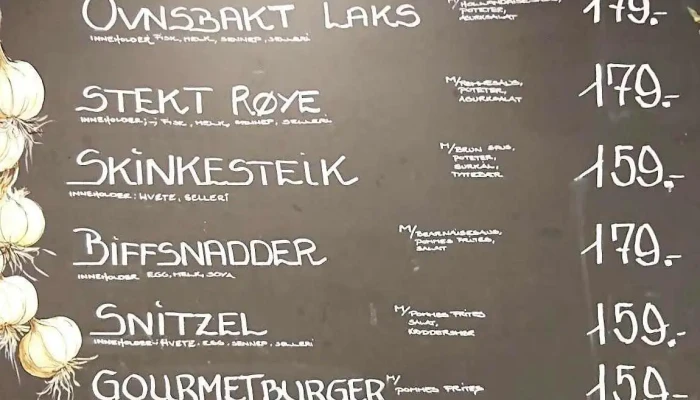 OVNSBAKT LAKS
INNEHOLDER FISK, MELK, SENNEP, SELLERI
M/HOLLANDAISESAUS,
POTETER,
AGURKSALAT
179.-
STEKT RØYE
INNEHOLDER:; FISK, MELK, SENNEP, SELLERI
M/RØMMESAUS,
POTETER,
AGURKSALAT
179.-
SKINKESTEIK
INNEHOLDER: HVETE, SELLERI
M/BRUN SAUS,
POTETER,
SURKÅL,
TYTTEBÆR
159.-
BIFFSNADDER
INNEHOLDER EGG, MELK, SOYA
M/BEARNAISESAUS,
POMMES FRITES,
SALAT
179.-
SNITZEL
INNEHOLDER: HVETE, EGG, SENNEP, SELLERI
M/POMMES FRITES
SALAT,
KRYDDERSMØR
159.-
GOURMETBURGER
M/POMMES FRITES
159.-